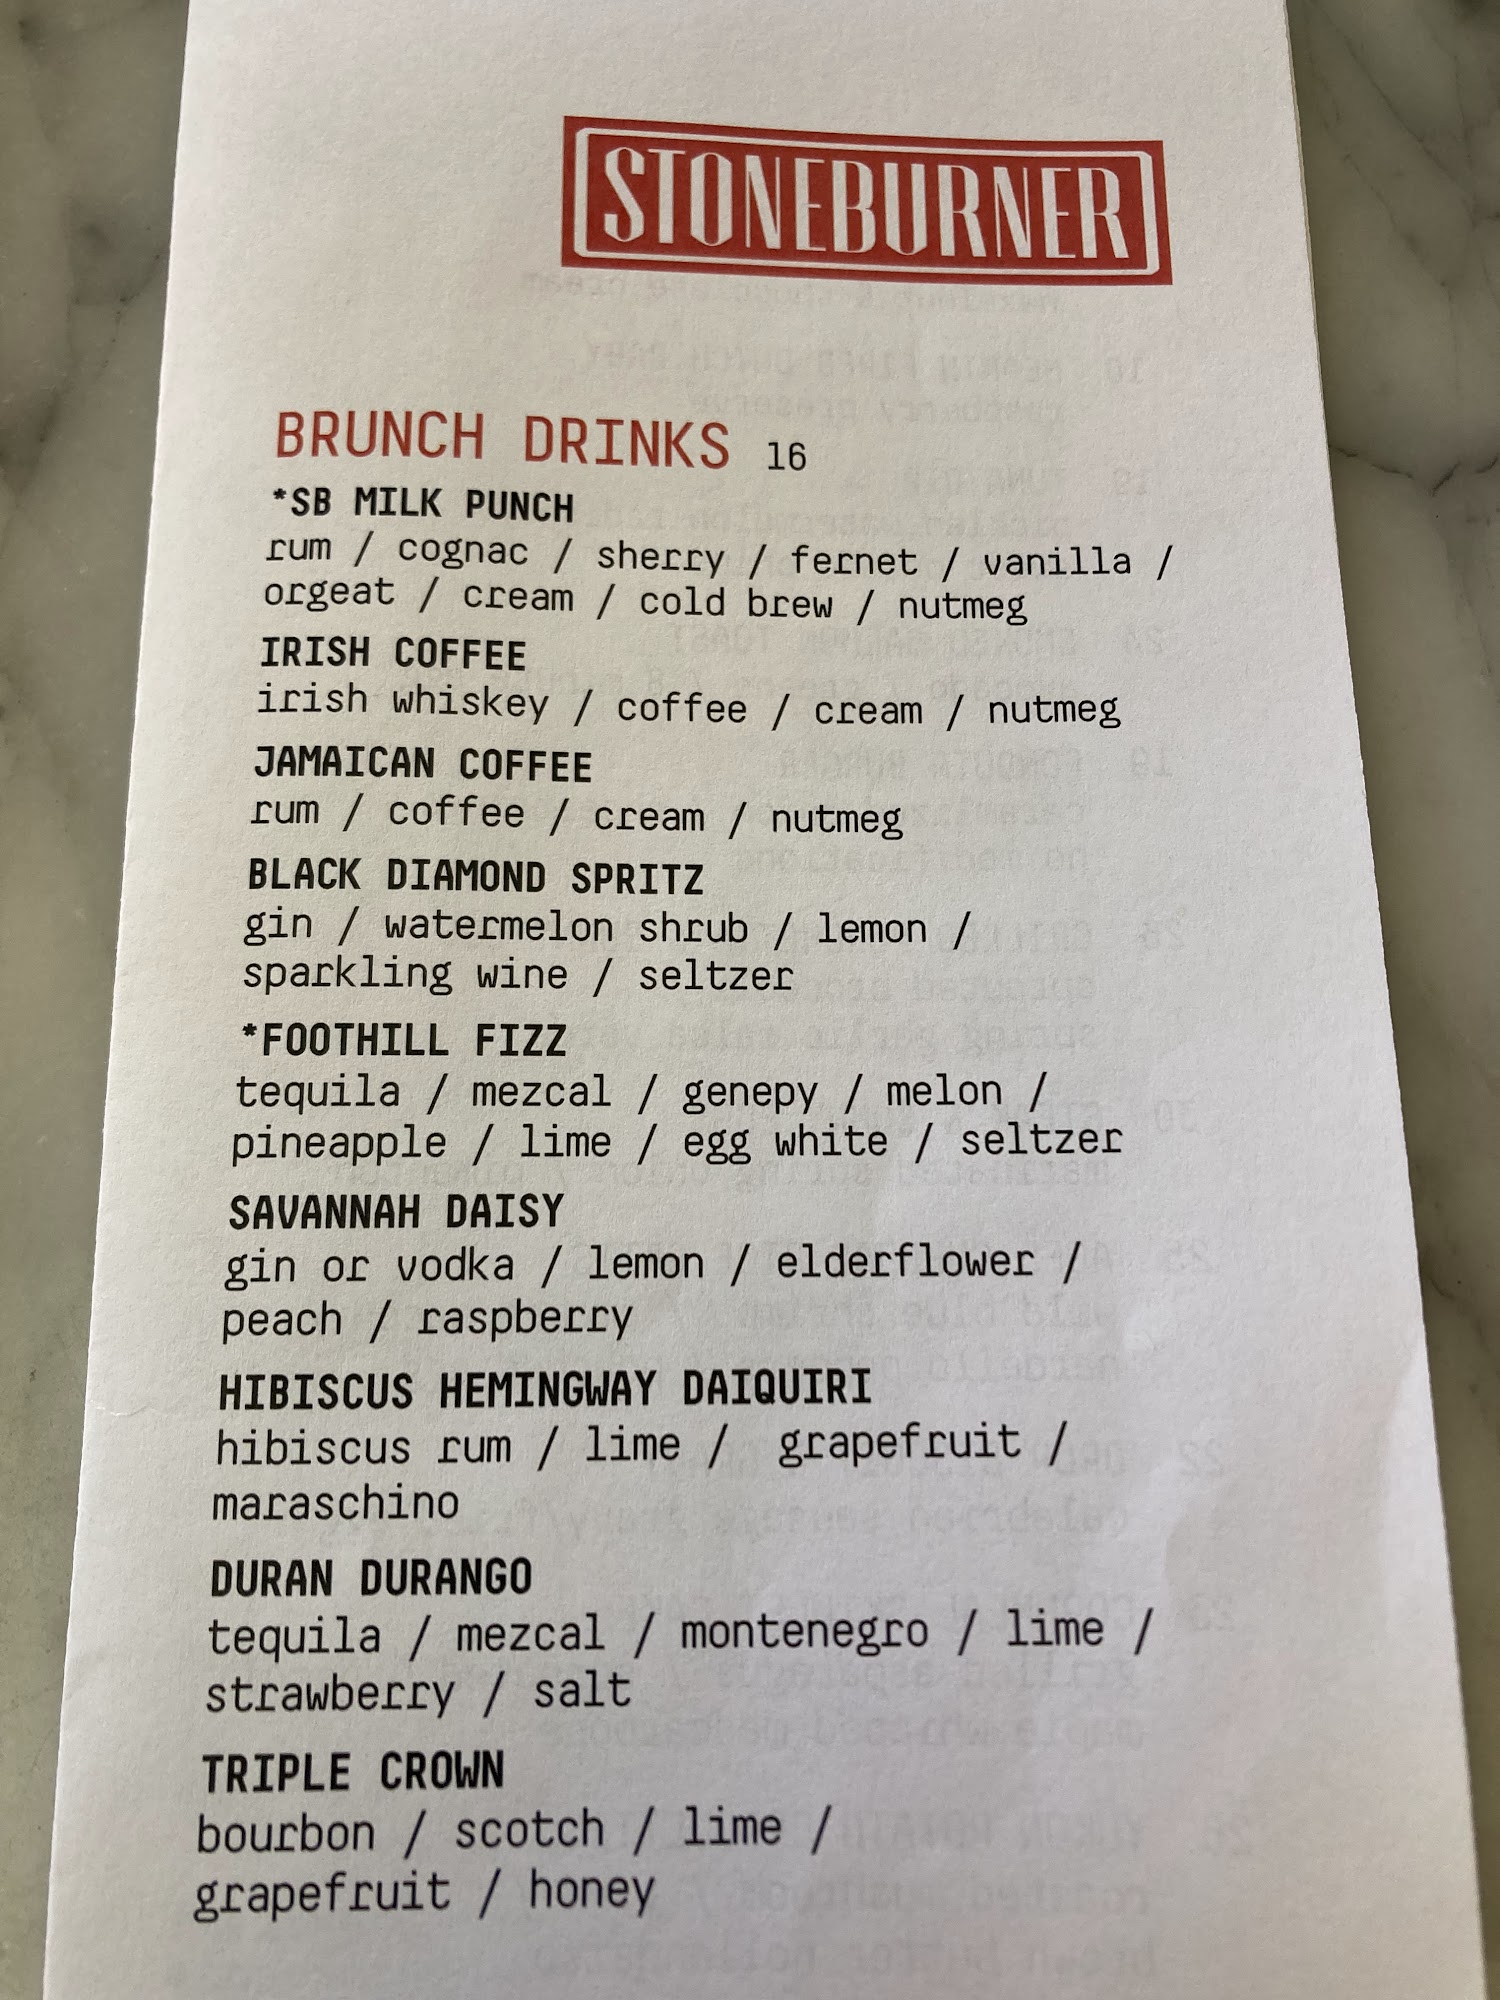 STONEBURNER
BRUNCH DRINKS 16
*SB MILK PUNCH
rum / cognac / sherry / fernet / vanilla /
orgeat / cream / cold brew / nutmeg
IRISH COFFEE
irish whiskey / coffee / cream / nutmeg
JAMAICAN COFFEE
rum / coffee / cream / nutmeg
BLACK DIAMOND SPRITZ
gin / watermelon shrub / lemon /
sparkling wine / seltzer
*FOOTHILL FIZZ
tequila / mezcal / genepy / melon /
pineapple / lime / egg white / seltzer
SAVANNAH DAISY
gin or vodka / lemon / elderflower /
peach / raspberry
HIBISCUS HEMINGWAY DAIQUIRI
hibiscus rum / lime / grapefruit /
maraschino
DURAN DURANGO
tequila / mezcal / montenegro / lime /
strawberry / salt
TRIPLE CROWN
bourbon / scotch / lime /
grapefruit / honey